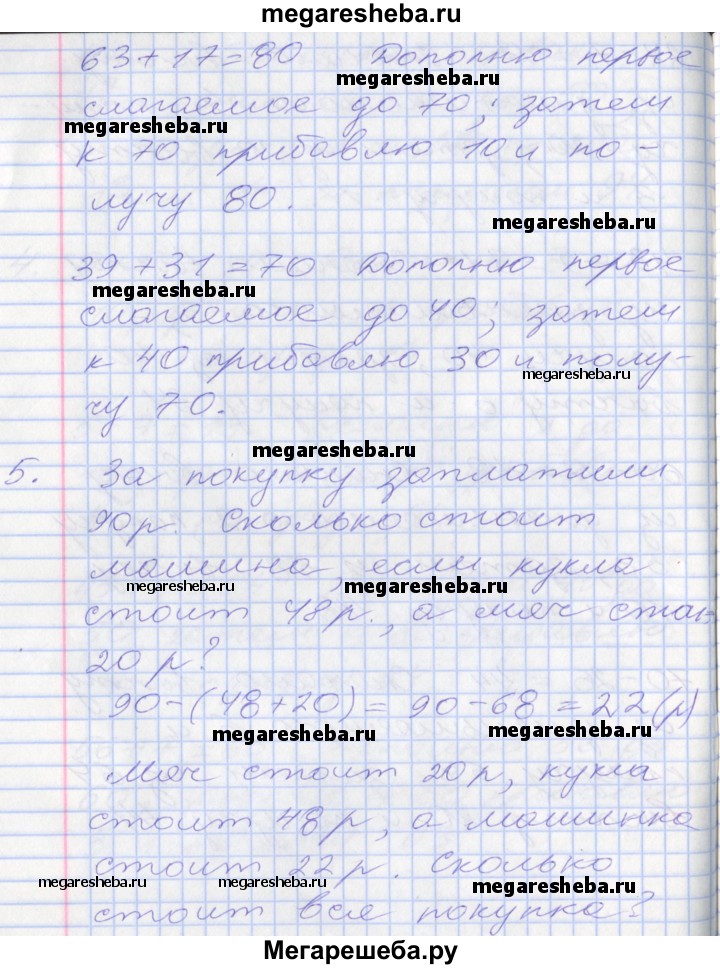 megaresheba.ru
63+17=80 Дополню первое
megaresheba.ru
слагаемое до 70, затем
megaresheba.ru
к 70 прибавлю 10 и по-
лучу 80.
megaresheba.ru
39+31=70 Дополню первое
megaresheba.ru
слагаемое до 40, затем
к 40 прибавлю 30 и полу-
megaresheba.ru
чу 70.
megaresheba.ru
5. За покупку заплатили
90р. Сколько стоит
машина, если кукла
megaresheba.ru megaresheba.ru
стоит 48 р., а мяч стоит
20 р?
90-(48+20)= 90-68=22(р)
megaresheba.ru megaresheba.ru
Мяч стоит 20р, кукла
стоит 48 р, а машинка
стоит 22р. Сколько
megaresheba.ru megaresheba.ru megaresheba.ru
стоит вся покупка?
Мегарешеба.ру